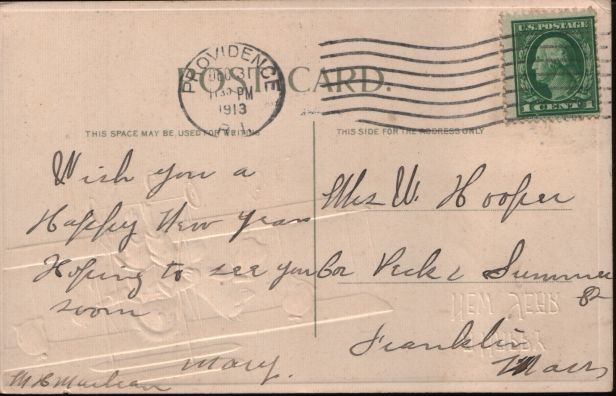 POST CARD.
PROVIDENCE
DEC 31
11 30 PM
1913
R.I.
U.S. POSTAGE
1 CENT 1
THIS SPACE MAY BE USED FOR WRITING
THIS SIDE FOR THE ADDRESS ONLY
Wish you a
Happy New Year
Hoping to see you
soon
Mary.
Mrs W. Hooper
Cor Peck & Summer
St
Franklin
Mass
NEW YEAR